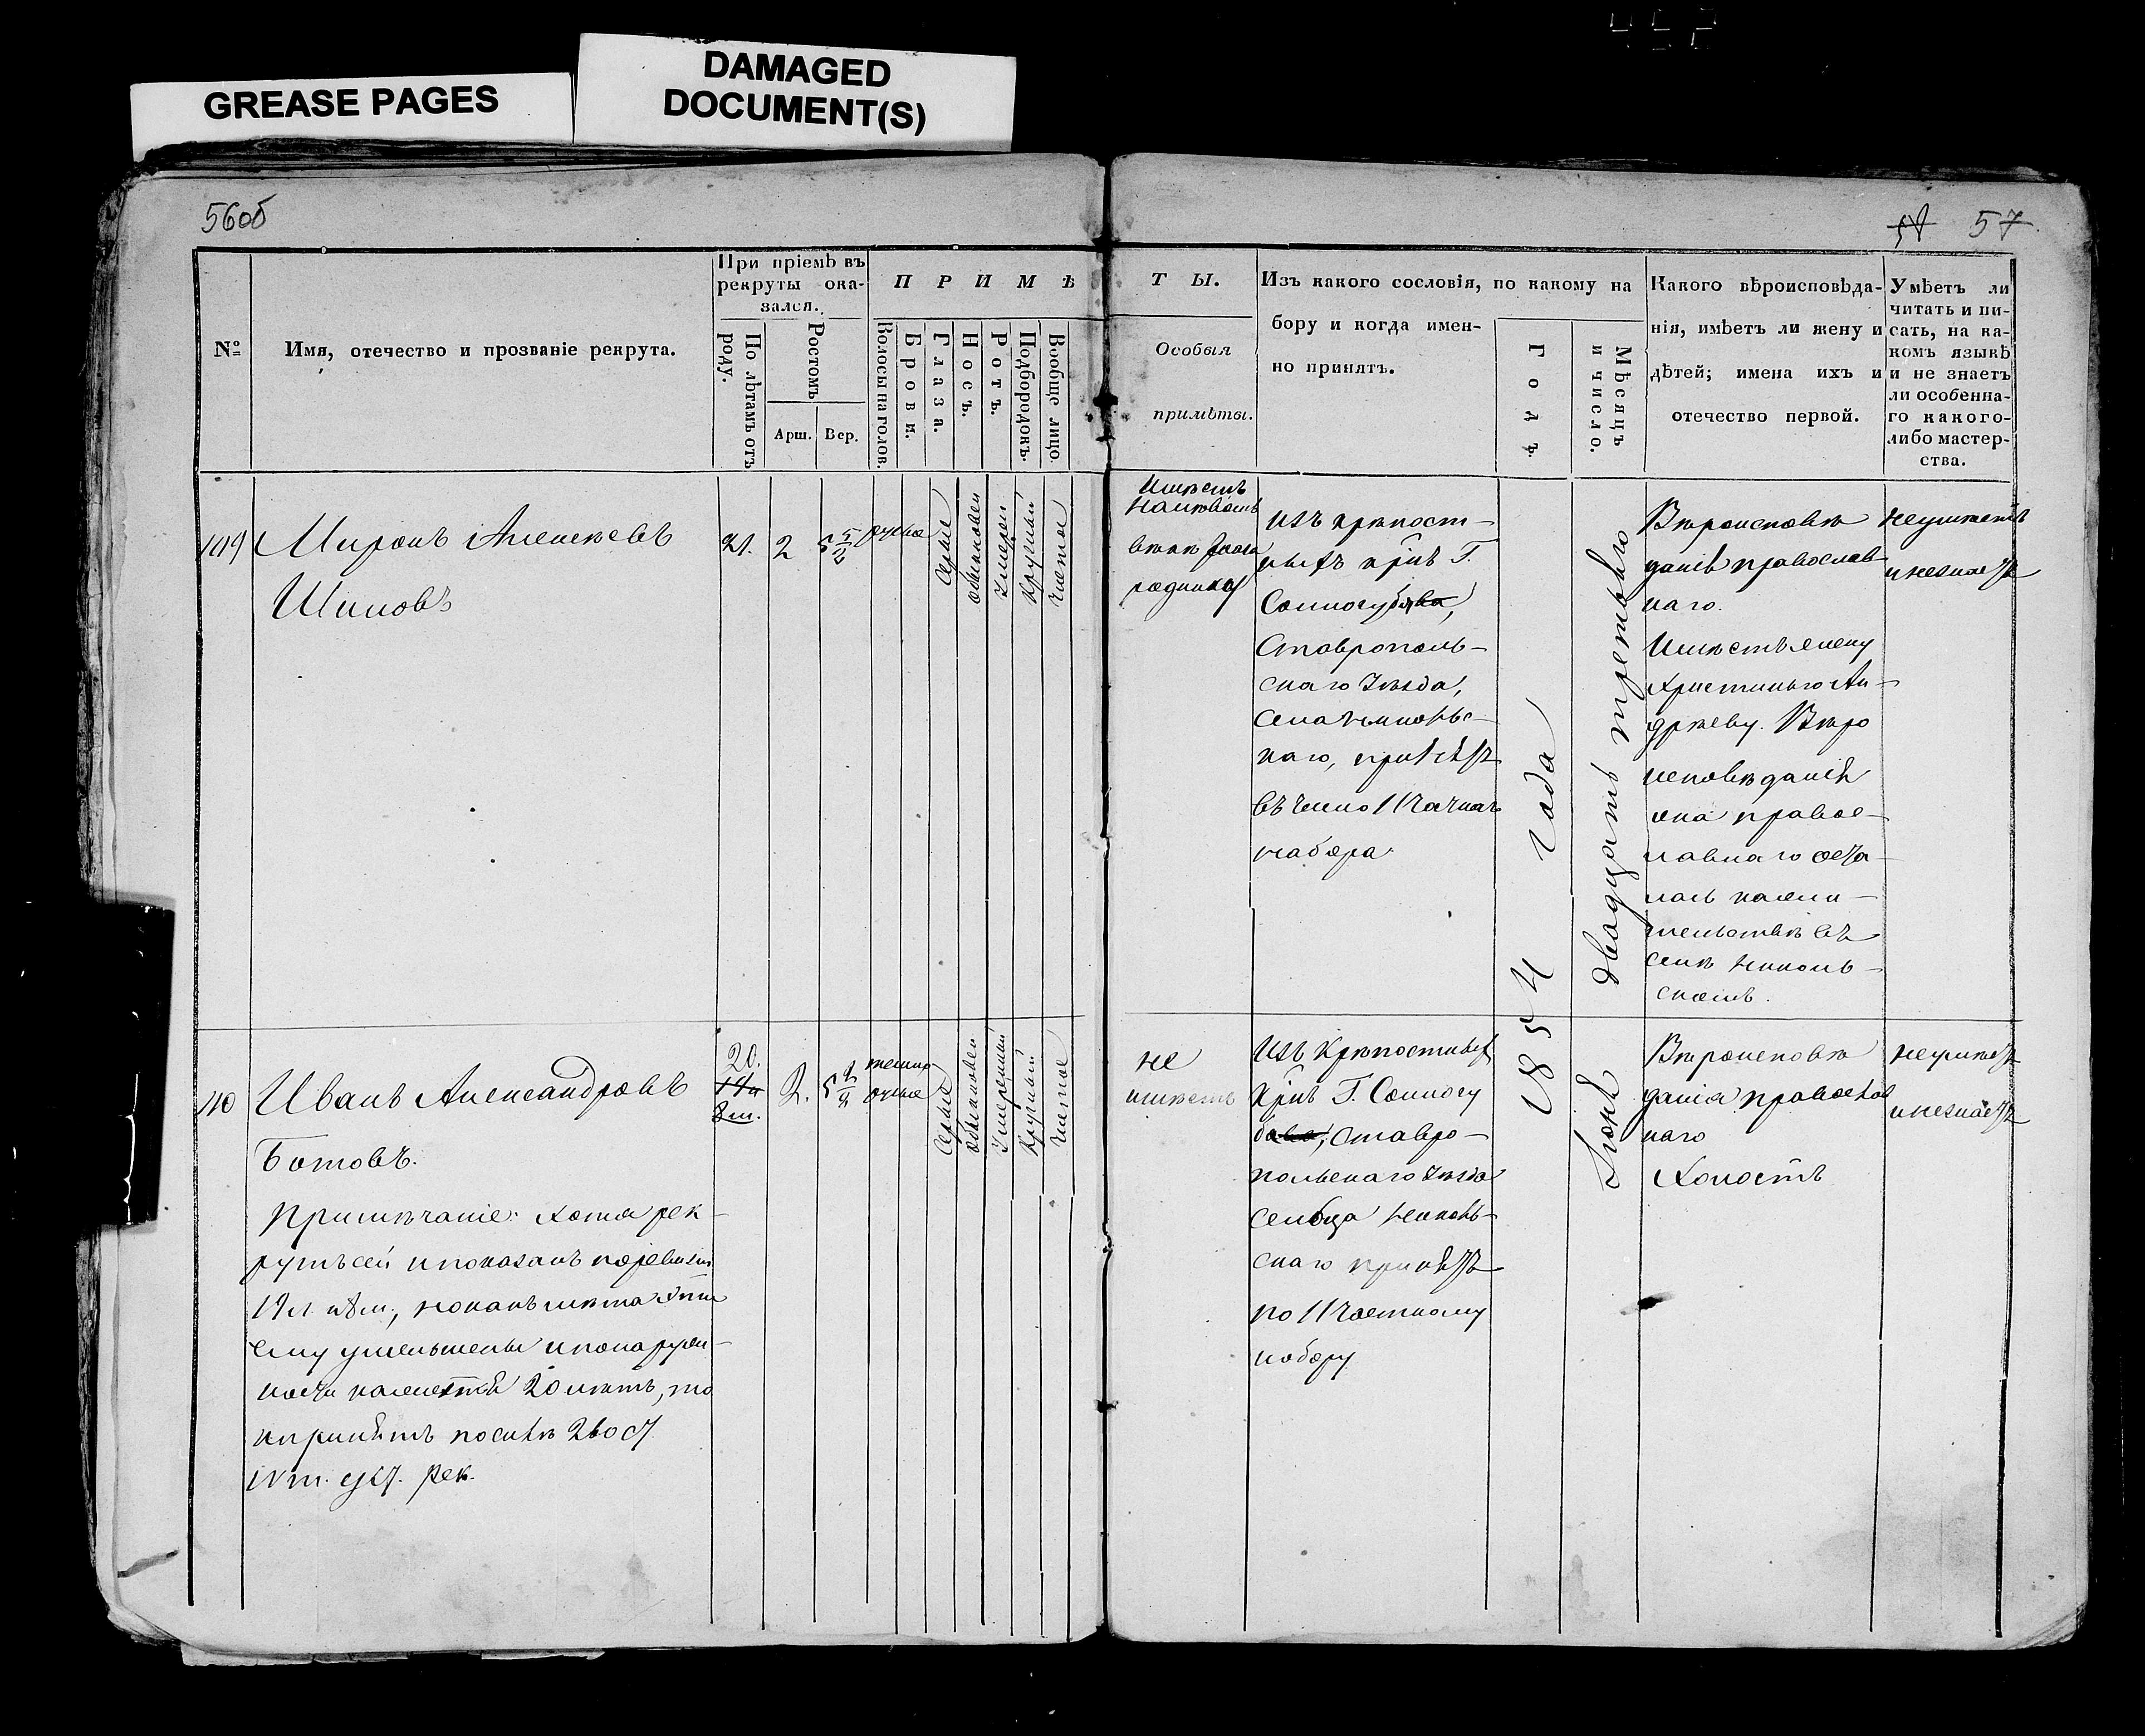 GREASE PAGES
DAMAGED
DOCUMENT(S)
56об
57
№
Имя, отечество и прозваніе рекрута.
При пріемѣ въ
рекруты ока-
зался.
По лѣтамъ отъ
роду.
Ростомъ
Арш.
Вер.
П Р И М Ѣ
Волосы на голов.
Брови.
Глаза.
Носъ.
Ротъ.
Подбородокъ.
Вообще лицо.
Т Ы.
Особыя
примѣты.
Изъ какого сословія, по какому на
бору и когда имен-
но принятъ.
Годъ.
Мѣсяцъ
и число.
Какого вѣроисповѣда-
нія, имѣетъ ли жену и
дѣтей; имена ихъ и
отечество первой.
Умѣетъ ли
читать и пи-
сать, на ка-
комъ языкѣ
и не знаетъ
ли особенна-
го какого-
либо мастер-
ства.
109
Миронъ Алексѣевъ
Шиповъ
21.
2
5
русые
Серые
обыкновен
Умерен
Круглый
Чистое
Имѣетъ
родинка
изъ крѣпост-
ныхъ крнъ Г.
Самосу
Ставрополь-
скаго Уѣзда,
Села Никольс-
каго, принятъ
въ число 11 частнаго
набора
1854 Года
Іюня двадцать третьяго
Вѣроисповѣ
данія православ
наго.
Имѣетъ жену
Христинью Ан-
дрѣеву. Вѣро
исповѣданія
она правос-
лавнаго оста
лась на жи-
тельствѣ въ
селѣ Николь-
скомъ.
неумѣетъ
и незнаетъ
110
Иванъ Александровъ
Ботовъ.
Примѣчаніе: Хотя рек-
рутъ сей и показанъ по ревизіи
19 л. 8 м., но какъ лѣта эти
ему уменьшены и по наруж-
ности 20 лѣтъ, то
и принятъ по силѣ 260 ст
IV т. уст. Рек.
20.
8 м.
2.
5
темно
русые
Серые
обыкновен
Умеренный
Круглый
Чистое
не
имѣетъ
Изъ Крѣпостныхъ
крнъ Г. Самосу
Ставро-
польскаго Уѣзда
сельца Николь-
скаго принятъ
по 11 Частному
набору
Вѣроисповѣ
данія православ
наго
Холостъ
неумѣетъ
и незнаетъ